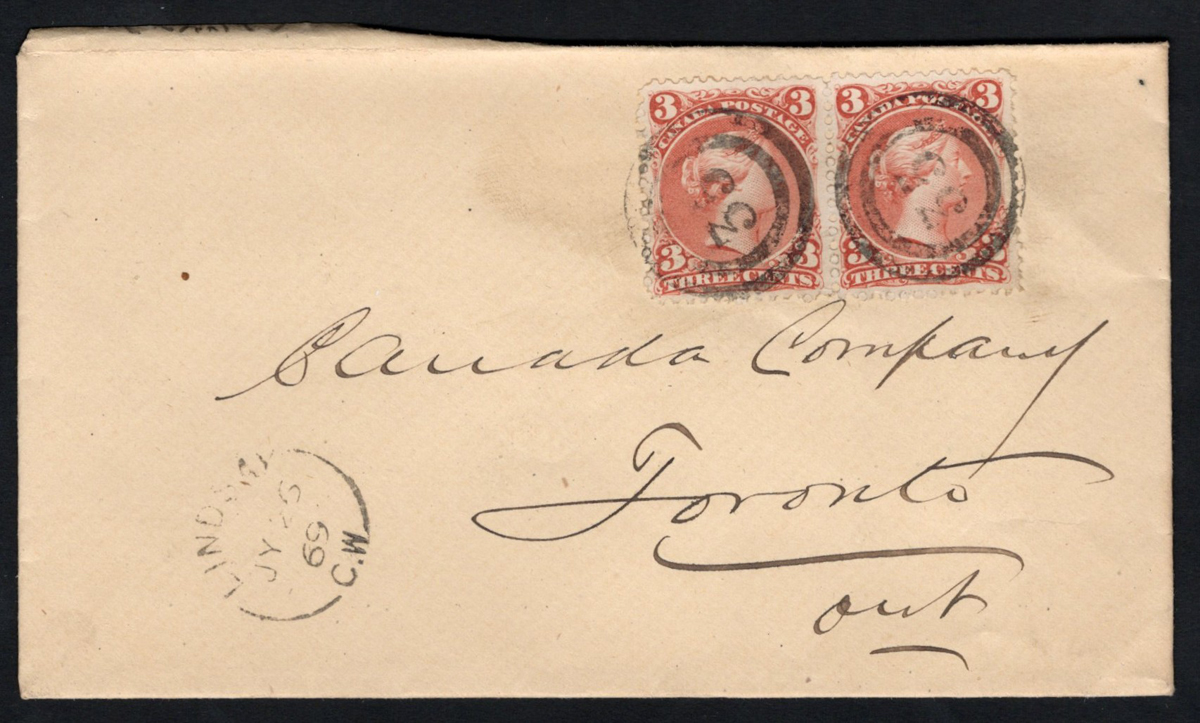 3 3 3 3
CANADA POSTAGE CANADA POSTAGE
35 35
3 3 3
THREE CENTS THREE CENTS
Canada Company
Toronto
Ont
LINDSAY
JY 26
69
C.W